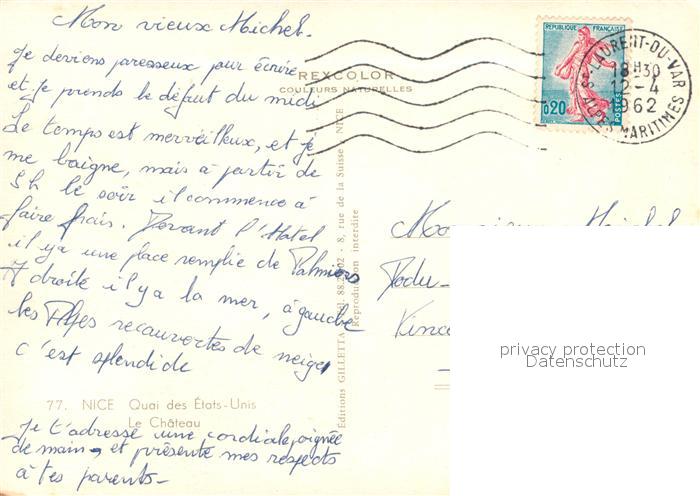 Mon vieux Michel.
Je deviens paresseux pour écrire
et je prends le défaut du midi
Le temps est merveilleux, et je
me baigne, mais à partir de
5h le soir il commence à
faire frais. Devant l'Hotel
il y a une place remplie de Palmiers
A droite il y a la mer, à gauche
les Alpes recouvertes de neige,
c'est splendide
77. NICE Quai des États-Unis
Le Château
Je t'adresse une cordiale poignée
de main, et présente mes respects
à tes parents-
REXCOLOR
COULEURS NATURELLES
Éditions GILLETTA - 8, rue de la Suisse - NICE
Reproduction interdite
REPUBLIQUE FRANÇAISE
0,20
POSTES
ST-LAURENT-DU-VAR
18H30
12-4
1962
ALPES MARITIMES
Monsieur Michel
privacy protection
Datenschutz